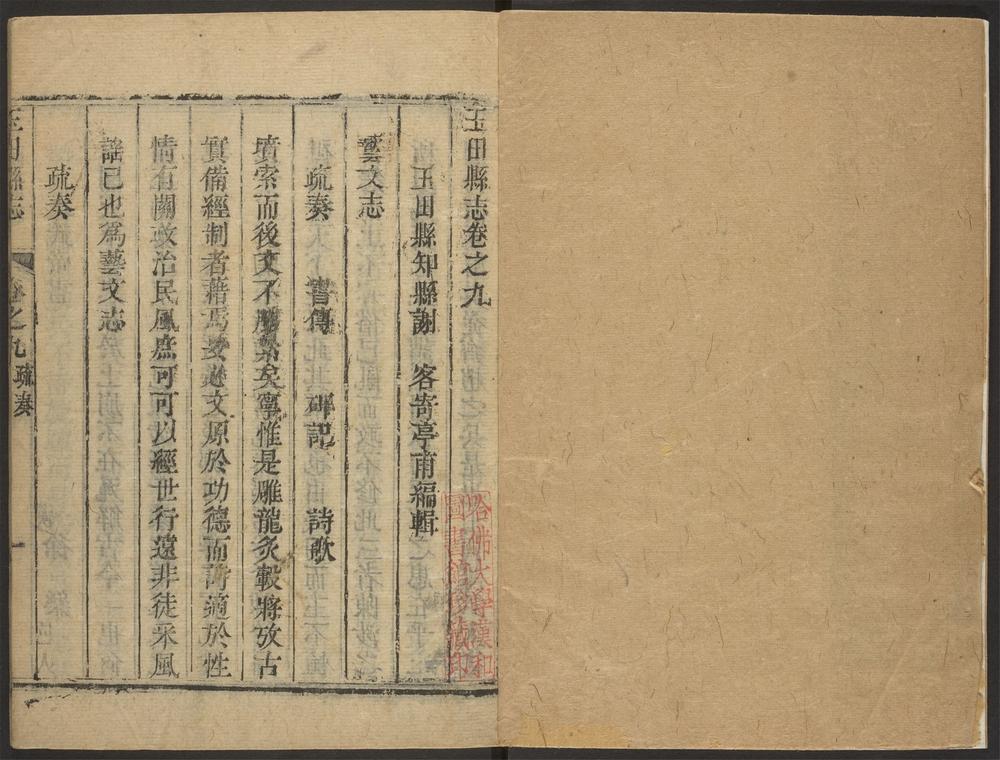 玉田縣志卷之九
玉田縣知縣謝 客 嵜亭甫編輯
藝文志
疏奏 書傳 碑記 詩歌
墳索而後文不勝繁矣寧惟是雕龍炙轂將攷古
實備經制者藉焉要趣文原於功德而詩適於性
情有關政治民風庶可可以經世行遠非徒采風
謡已也爲藝文志
疏奏
玉田縣志 卷之九 疏奏 一
哈佛大學漢和
圖書館珍藏印